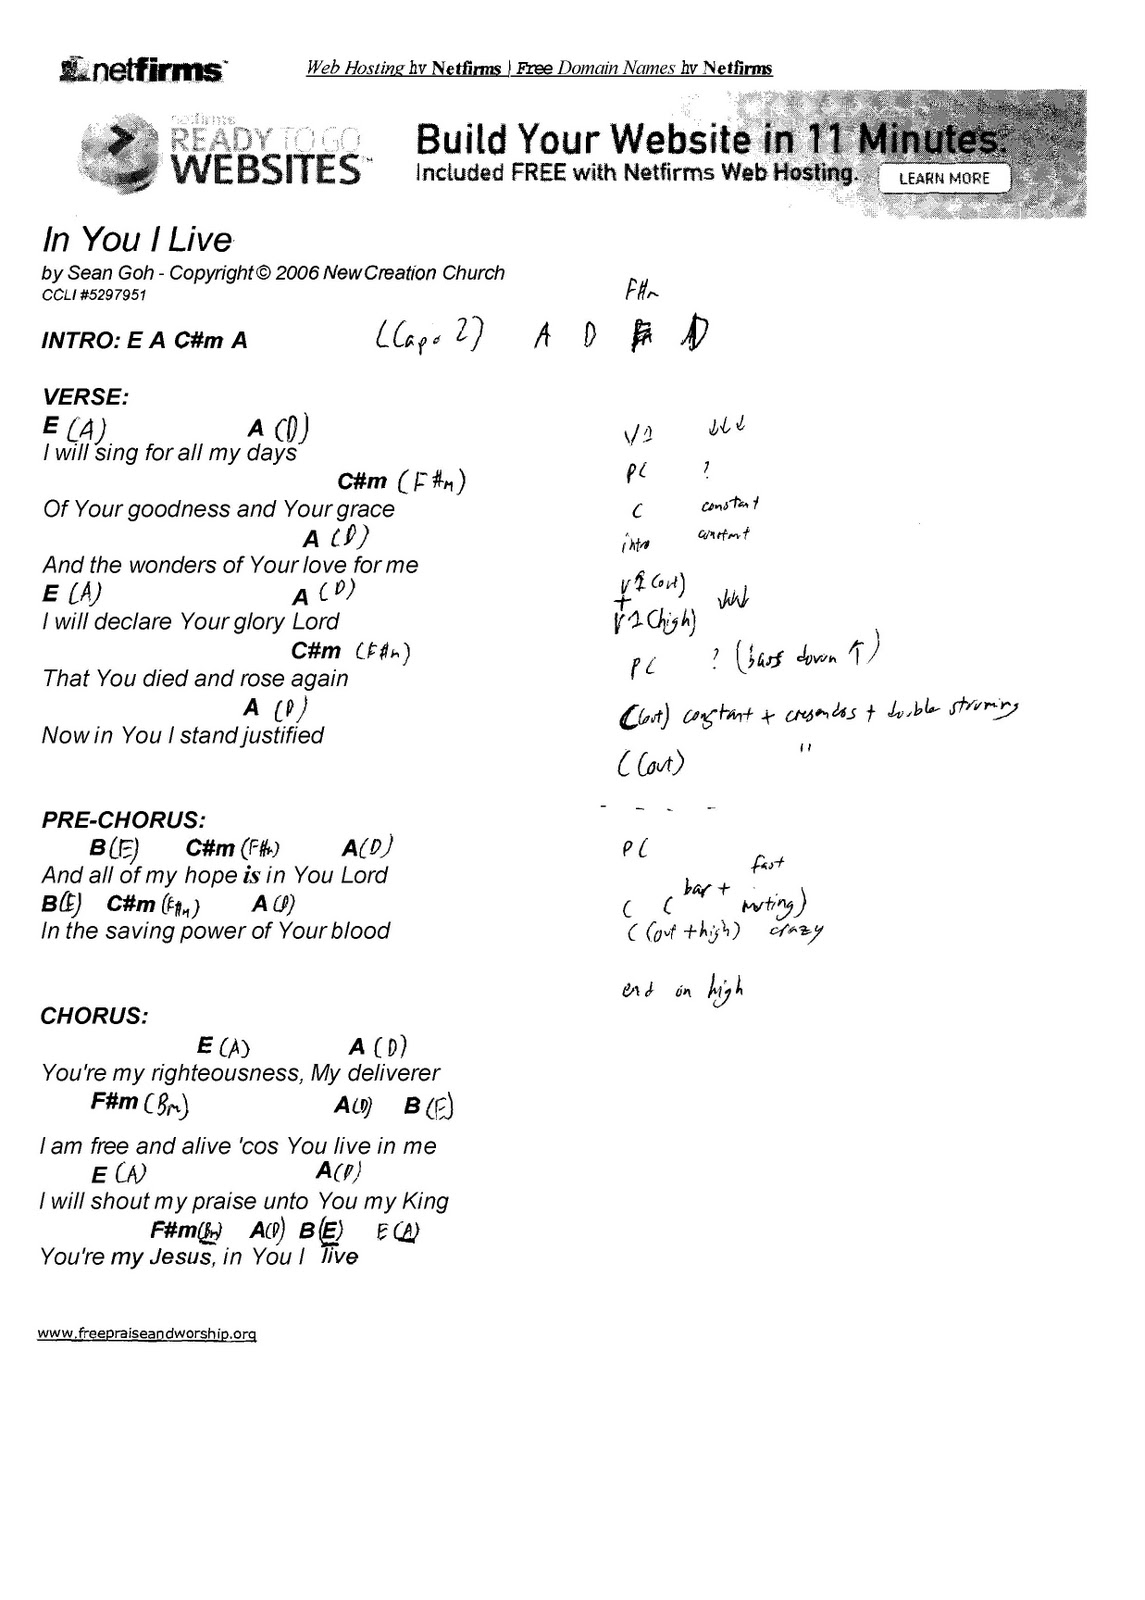 netfirms™
Web Hosting by Netfirms | Free Domain Names by Netfirms
netfirms
READY TO GO
WEBSITES™
Build Your Website in 11 Minutes.
Included FREE with Netfirms Web Hosting.
LEARN MORE
In You I Live
by Sean Goh - Copyright © 2006 New Creation Church
CCLI #5297951
F#m
INTRO: E A C#m A (Capo 2) A D D
VERSE:
E (A) A (D)
I will sing for all my days
C#m (F#m)
Of Your goodness and Your grace
A (D)
And the wonders of Your love for me
E (A) A (D)
I will declare Your glory Lord
C#m (F#m)
That You died and rose again
A (D)
Now in You I stand justified
PRE-CHORUS:
B (E) C#m (F#m) A (D)
And all of my hope is in You Lord
B (E) C#m (F#m) A (D)
In the saving power of Your blood
CHORUS:
E (A) A (D)
You're my righteousness, My deliverer
F#m (Bm) A (D) B (E)
I am free and alive 'cos You live in me
E (A) A (D)
I will shout my praise unto You my King
F#m (Bm) A (D) B (E) E (A)
You're my Jesus, in You I live
www.freepraiseandworship.org
V1 ↓↓↓
PC ?
C constant
intro constant
V1 (out)
+ ↓↓↓
V1 (high)
PC ? (bass down ↑)
C (out) constant + cresendos + double struming
C (out) "
- - - -
PC
fast
C (bar + muting)
C (out + high) crazy
end on high